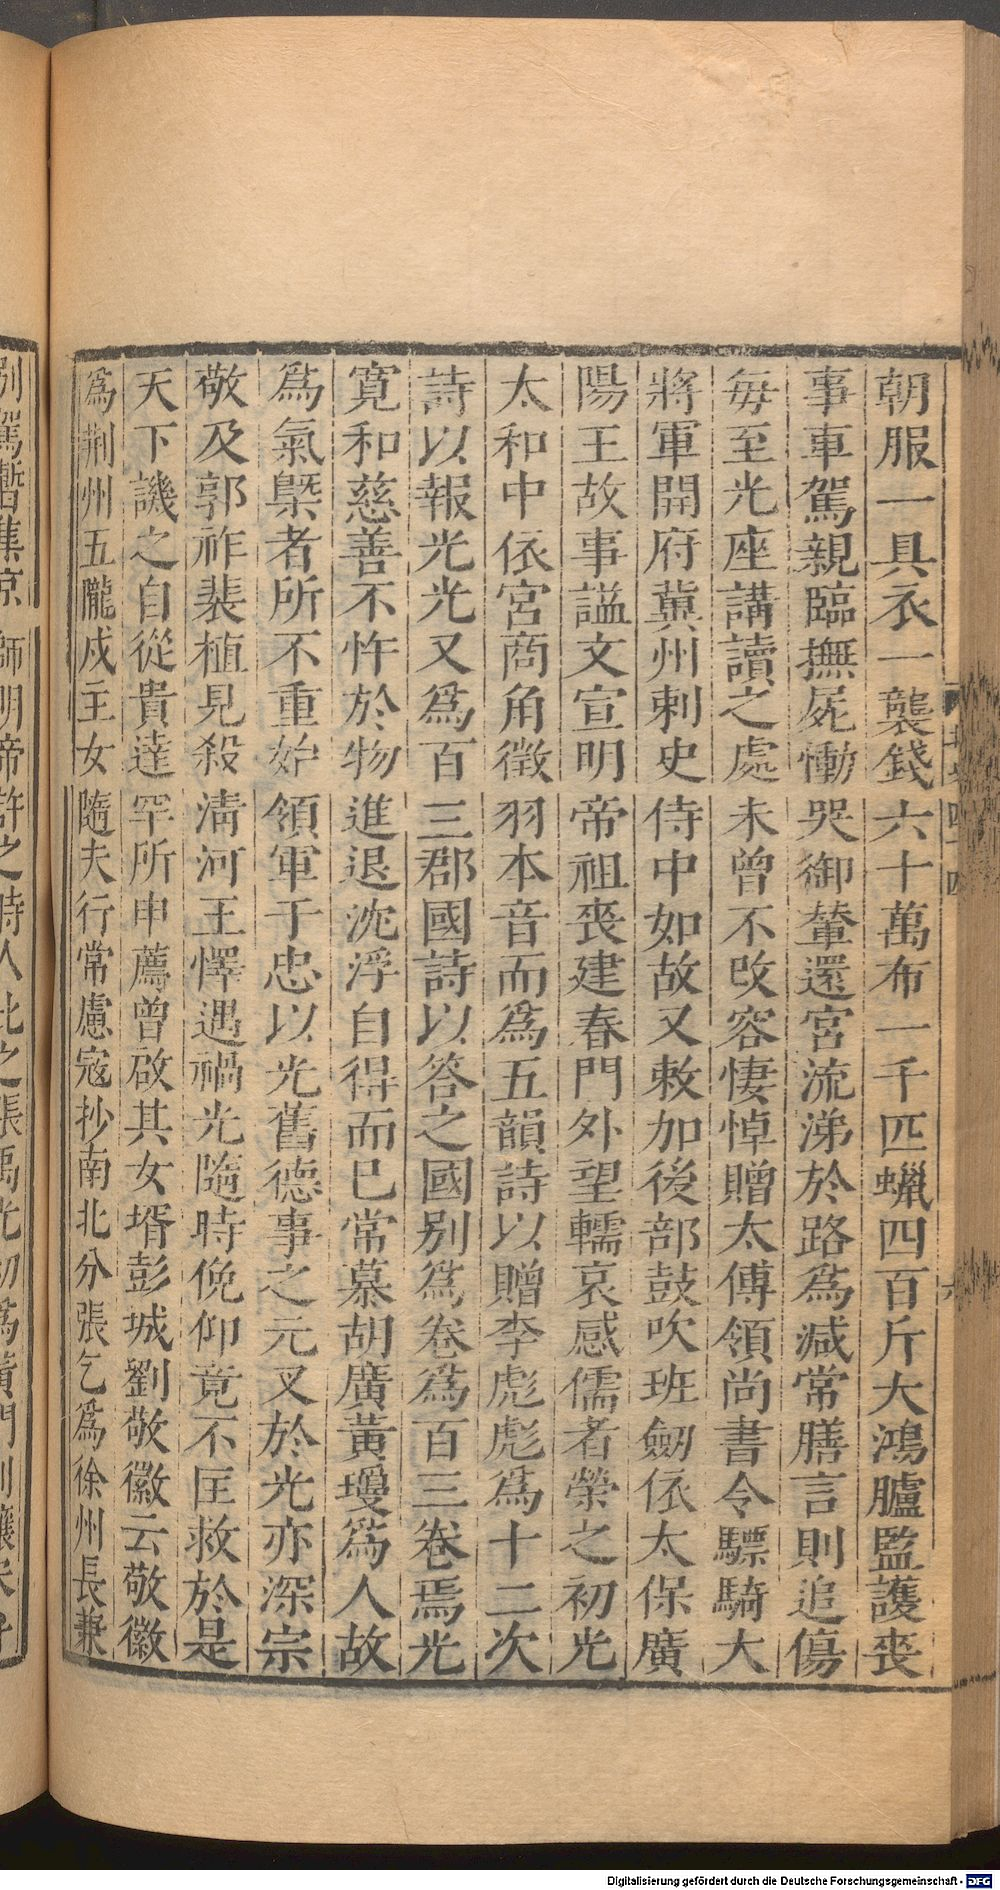 朝服一具衣一襲錢六十萬布一千匹蠟四百斤大鴻臚監護喪
事車駕親臨撫屍慟哭御輦還宮流涕於路爲減常膳言則追傷
每至光座講讀之處未曾不改容悽悼贈太傅領尚書令驃騎大
將軍開府冀州剌史侍中如故又敕加後部鼓吹班劒依太保廣
陽王故事諡文宣明帝祖喪建春門外望轜哀感儒者榮之初光
太和中依宮商角徵羽本音而爲五韻詩以贈李彪彪爲十二次
詩以報光光又爲百三郡國詩以答之國别爲卷爲百三卷焉光
寛和慈善不忤於物進退沈浮自得而已常慕胡廣黃瓊爲人故
爲氣槩者所不重始領軍于忠以光舊德事之元叉於光亦深宗
敬及郭祚裴植見殺清河王懌遇禍光隨時俛仰竟不匡救於是
天下譏之自從貴達罕所申薦曾啟其女壻彭城劉敬徽云敬徽
爲荆州五隴戍主女隨夫行常慮寇抄南北分張乞爲徐州長兼
别駕暫集京師明帝許之時人比之張禹光初爲黃門則讓宋弁
北史四十四
六
Digitalisierung gefördert durch die Deutsche Forschungsgemeinschaft - DFG